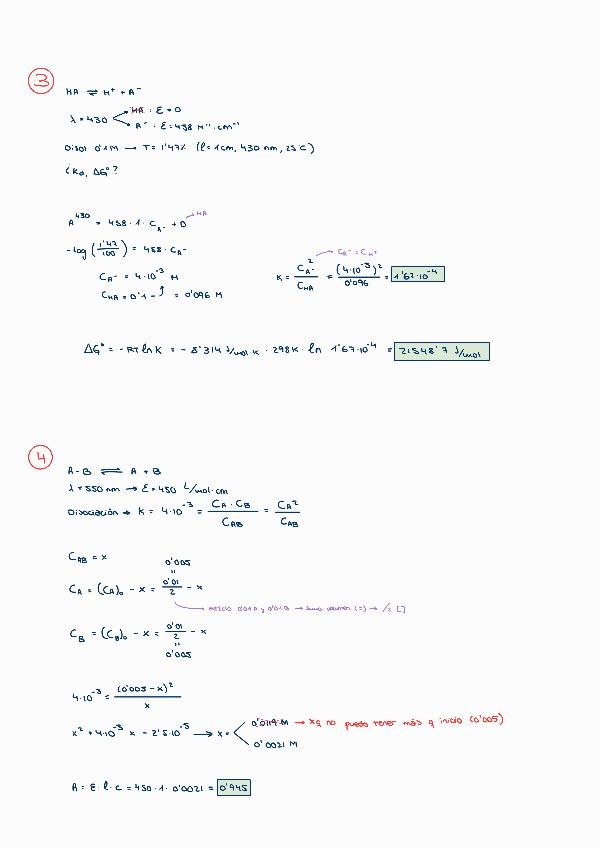 3
HA ⇌ H⁺ + A⁻
λ = 430
HA : ε = 0
A⁻ : ε = 458 M⁻¹·cm⁻¹
Disol 0'1M → T = 1'47% (l = 1cm, 430 nm, 25ºC)
¿Ka, ΔGº?
A⁴³⁰ = 458 · 1 · C_A⁻ + 0 → HA
-log (1'47/100) = 458 · C_A⁻
C_A⁻ = 4·10⁻³ M
C_HA = 0'1 - ↑ = 0'096 M
C_A⁻ = C_H⁺
K = C_A⁻² / C_HA = (4·10⁻³)² / 0'096 = 1'67·10⁻⁴
ΔGº = -RT ln K = - 8'314 J/mol K · 298K · ln 1'67·10⁻⁴ = 21548'7 J/mol
4
A-B ⇌ A + B
λ = 550 nm → ε = 450 L/mol·cm
Disociación → K = 4·10⁻³ = C_A · C_B / C_AB = C_A² / C_AB
C_AB = x
0'005
"
C_A = (C_A)₀ - x = 0'01/2 - x
mezclo 0'01 A y 0'01 B → mismo volumen (=) → /2 []
C_B = (C_B)₀ - x = 0'01/2 - x
"
0'005
4·10⁻³ = (0'005 - x)² / x
x² + 4·10⁻³ x - 2'5·10⁻⁵ → x =
0'0119 M → xq no puedo tener más q inicio (0'005)
0'0021 M
A = ε · l · c = 450 · 1 · 0'0021 = 0'945